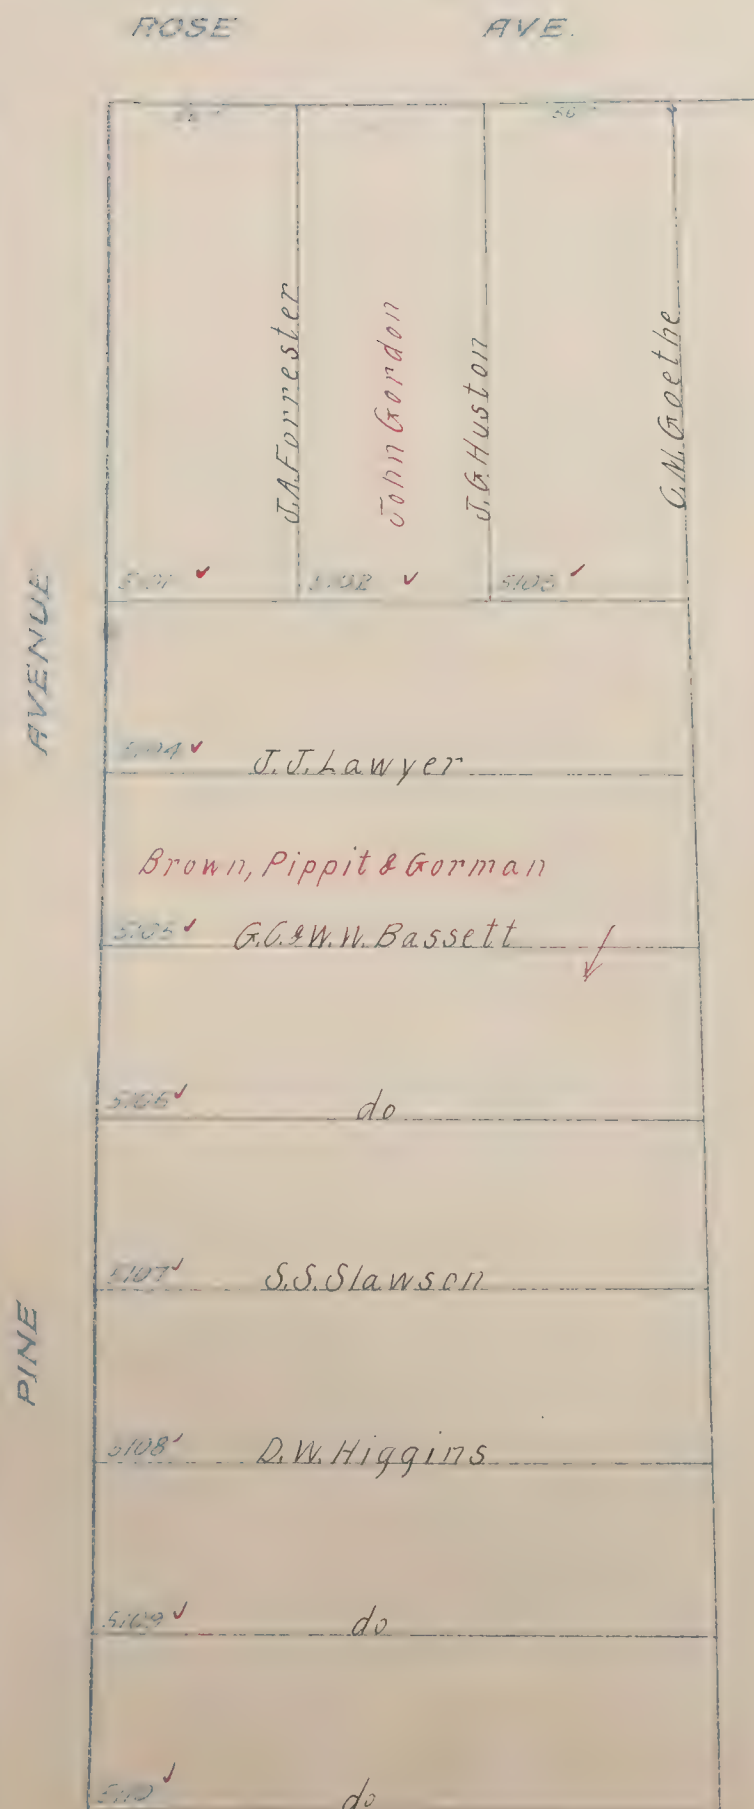 ROSE AVE.
50
J.A.Forrester
John Gordon
J.G.Huston
C.M.Goethe
5101 ✓
5102 ✓
5103 ✓
AVENUE
5104 ✓ J.J.Lawyer
Brown, Pippit & Gorman
5105 ✓ G.C.& W.W.Bassett
5106 ✓ do
5107 ✓ S.S.Slawson
PINE
5108 ✓ D.W.Higgins
5109 ✓ do
5110 ✓ do